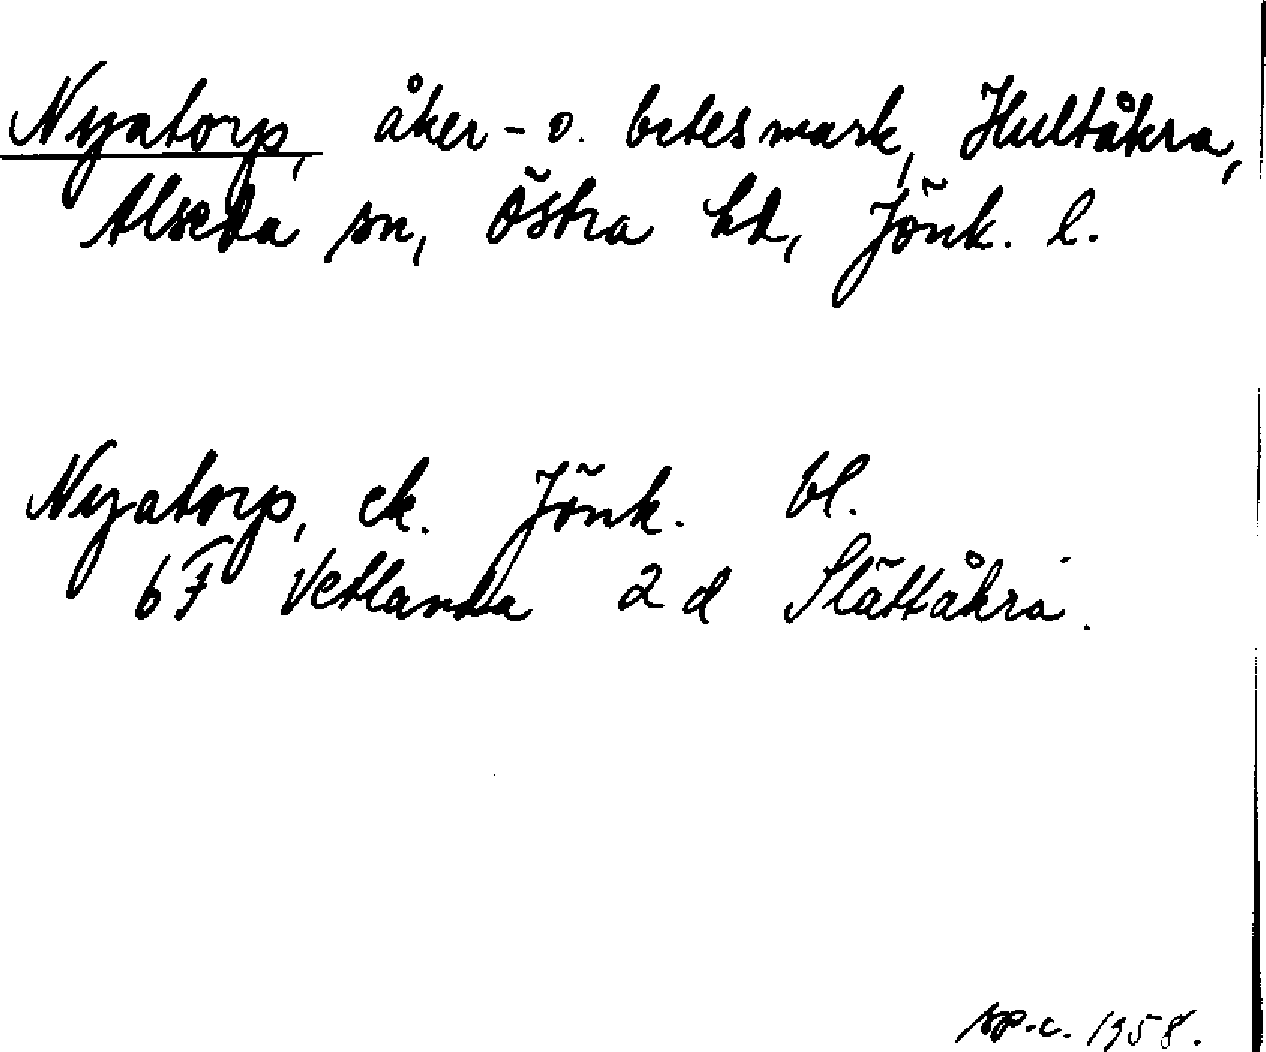 Nyatorp, åker- o. betesmark, Hultåkra,
Alseda sn, Östra hd, Jönk. l.
Nyatorp, ek. Jönk. bl.
6F Vetlanda 2d Slättåkra.
sp.c. 1958.